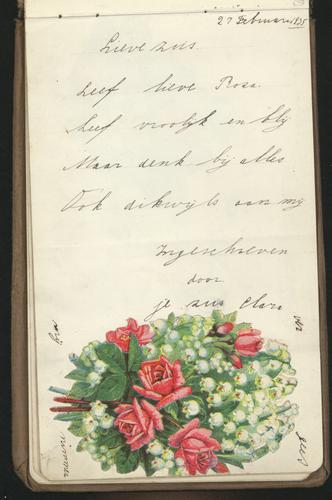 27 Februari 1935
Lieve zus.
Leef lieve Rosa
Leef vroolijk en blij
Maar denk bij alles
Ook dikwijls aan mij
Ingeschreven
door
je zus Clara